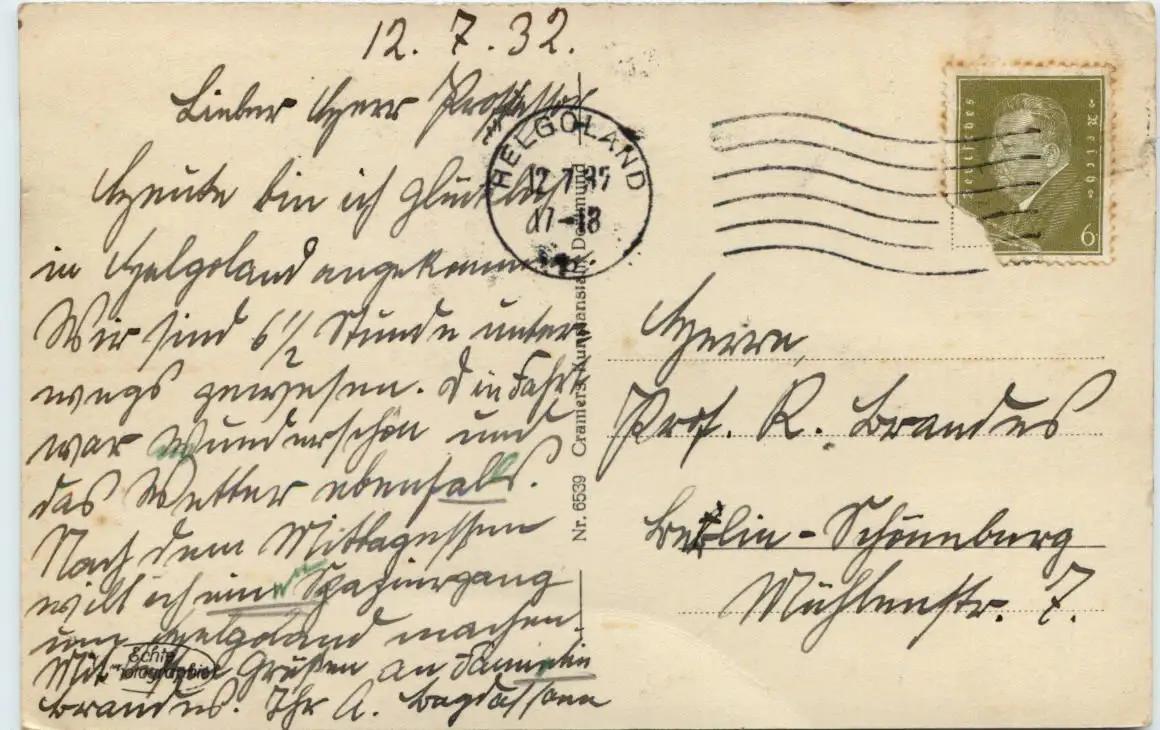 12. 7. 32.
Lieber Herr Professor
Heute bin ich glücklich
in Helgoland angekommen.
Wir sind 6 1/2 Stunde unter
wegs gewesen. Die Fahrt
war wunderschön und
das Wetter ebenfalls.
Nach dem Mittagessen
will ich einen Spaziergang
um Helgoland machen.
Mit Grüßen an Familie
Brandes. Ihr A.
Echte
Photographie
HELGOLAND
12 7 32
17-18
Nr. 6539 Cramers Kunstanstalt, Dortmund
Deutsches Reich
6
Herrn,
Prof. R. Brandes
Berlin-Schöneberg
Mühlenstr. 7.